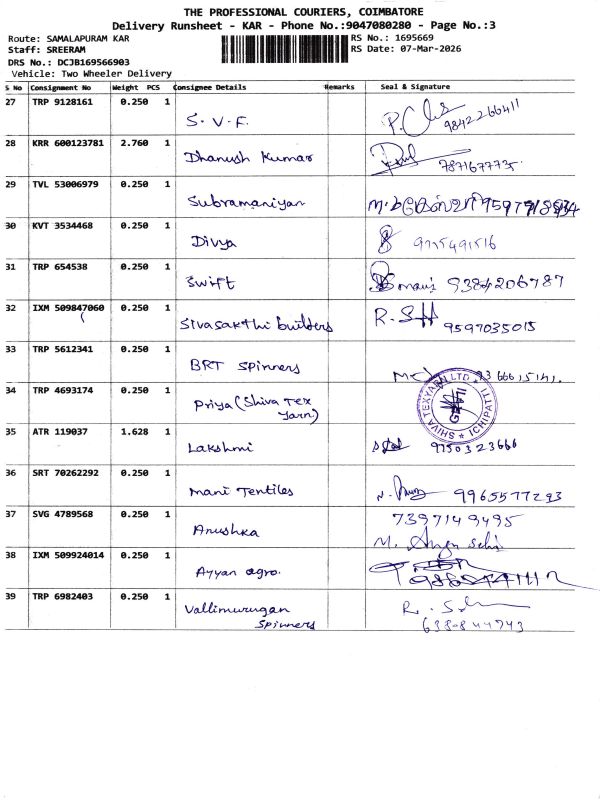 THE PROFESSIONAL COURIERS, COIMBATORE
Delivery Runsheet - KAR - Phone No.:9047080280 - Page No.:3
Route: SAMALAPURAM KAR
RS No.: 1695669
Staff: SREERAM
RS Date: 07-Mar-2026
DRS No.: DCJB169566903
Vehicle: Two Wheeler Delivery
S No Consignment No Weight PCS Consignee Details Remarks Seal & Signature
27 TRP 9128161 0.250 1 S.V.F. 9842266411
28 KRR 600123781 2.760 1 Dhanush Kumar 7871677735
29 TVL 53006979 0.250 1 Subramaniyan
30 KVT 3534468 0.250 1 Divya 9775491516
31 TRP 654538 0.250 1 Swift 9384206787
32 IXM 509847060 0.250 1 Sivasakthi builders R.S 9597035015
33 TRP 5612341 0.250 1 BRT Spinners
34 TRP 4693174 0.250 1 Priya (Shiva Tex Yarn)
SHIVA TEXYARN LTD ★ ICHIPATTI ★
35 ATR 119037 1.628 1 Lakshmi 9750323666
36 SRT 70262292 0.250 1 Mani Textiles 9965577293
37 SVG 4789568 0.250 1 Anushka 7397149495
38 IXM 509924014 0.250 1 Ayyan agro.
39 TRP 6982403 0.250 1 Vallimurugan Spinners